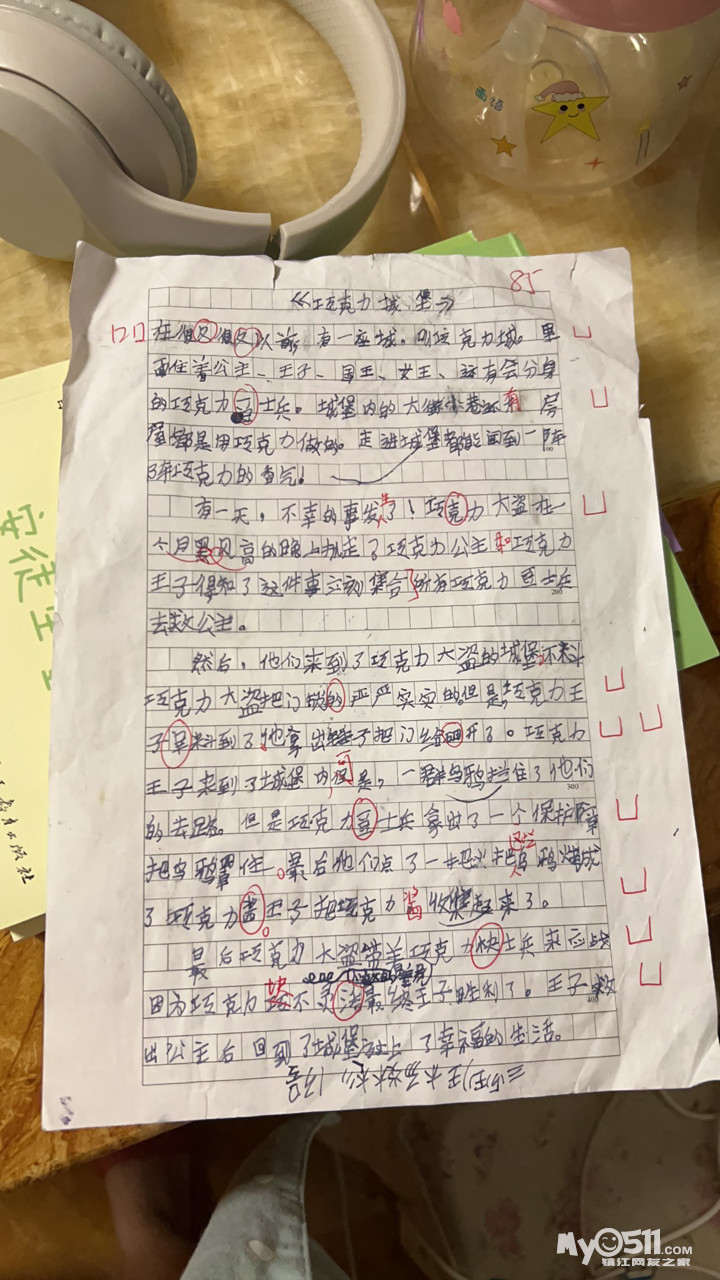 85
《巧克力城堡》
在很久很久以前,有一座城。叫巧克力城。里
面住着公主、王子、国王、女王、还有会分身
的巧克力豆士兵。城堡内的大街小巷还有房
屋都是用巧克力做的。走进城堡都能闻到一阵
阵巧克力的香气!
有一天,不幸的事发生了!巧克力大盗在一
个月黑风高的晚上抓走了巧克力公主和巧克力
王子得知了这件事立刻集合了所有巧克力豆士兵
去救公主。
然后,他们来到了巧克力大盗的城堡不料
巧克力大盗把门锁的严严实实的。但是,巧克力王
子早料到了,他拿出锤子把门给砸开了。巧克力
王子来到了城堡内可是,一群乌鸦挡住了他们
的去路。但是巧克力豆士兵拿出了一个保护障
把乌鸦罩住。最后他们点了一把火把乌鸦烧成
了巧克力酱。王子把巧克力酱收集起来了。
最后巧克力大盗带着巧克力块士兵来应战
因为巧克力块不灵活最终王子胜利了。王子救
出公主后回到了城堡过上了幸福的生活。
100
200
300
400
三(5)班 19号
安徒生
出版社
My0511.com
镇江网友之家